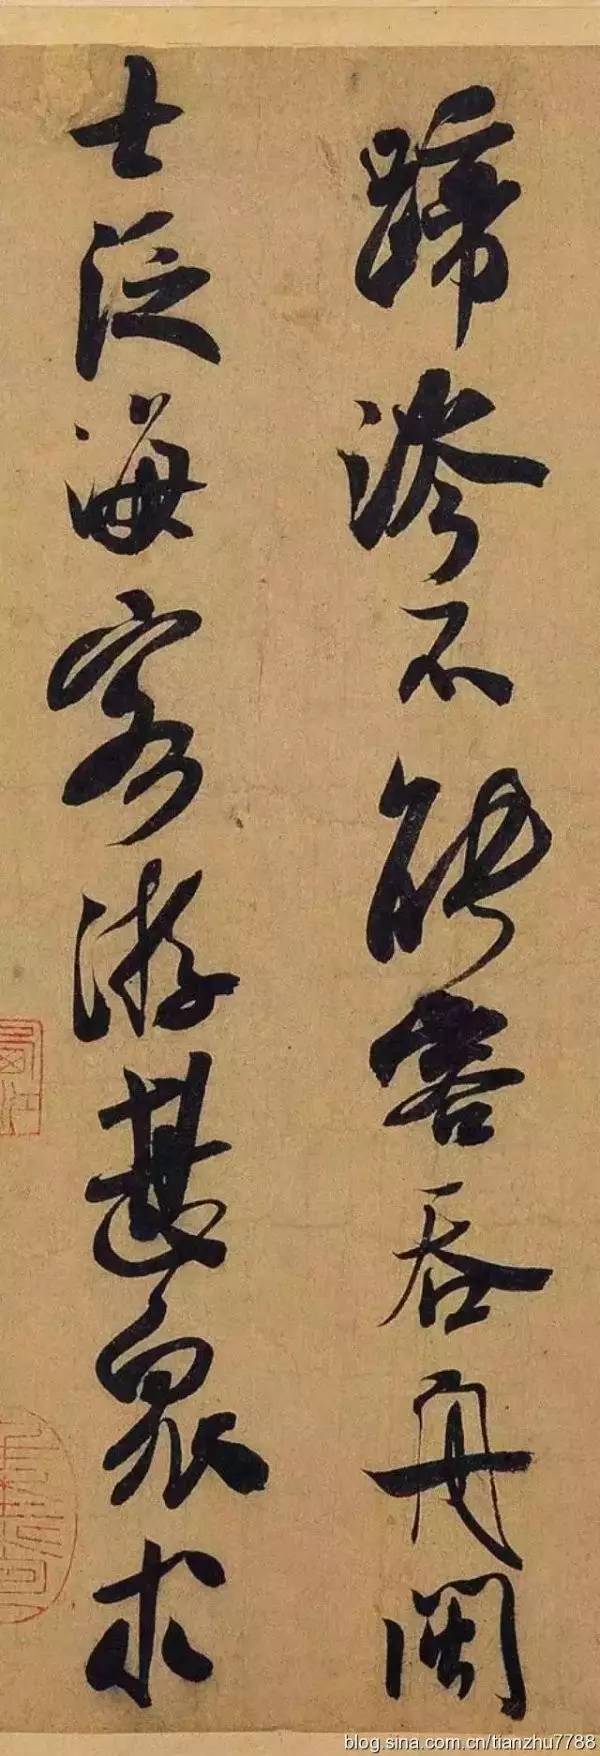 蹄涔不能容吞舟閩
士泛海客游甚衆求
blog.sina.com.cn/tianzhu7788